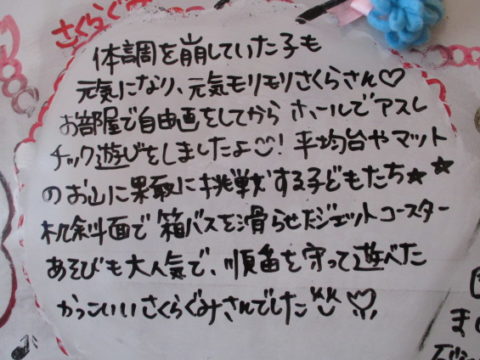 さくらぐみ
体調を崩していた子も
元気になり、元気モリモリさくらさん♡
お部屋で自由画をしてから ホールでアスレ
チック遊びをしましたよ☺！平均台やマット
のお山に果敢に挑戦する子どもたち★★
机斜面で箱バスを滑らせたジェットコースター
あそびも大人気で、順番を守って遊べた
かっこいいさくらぐみさんでした